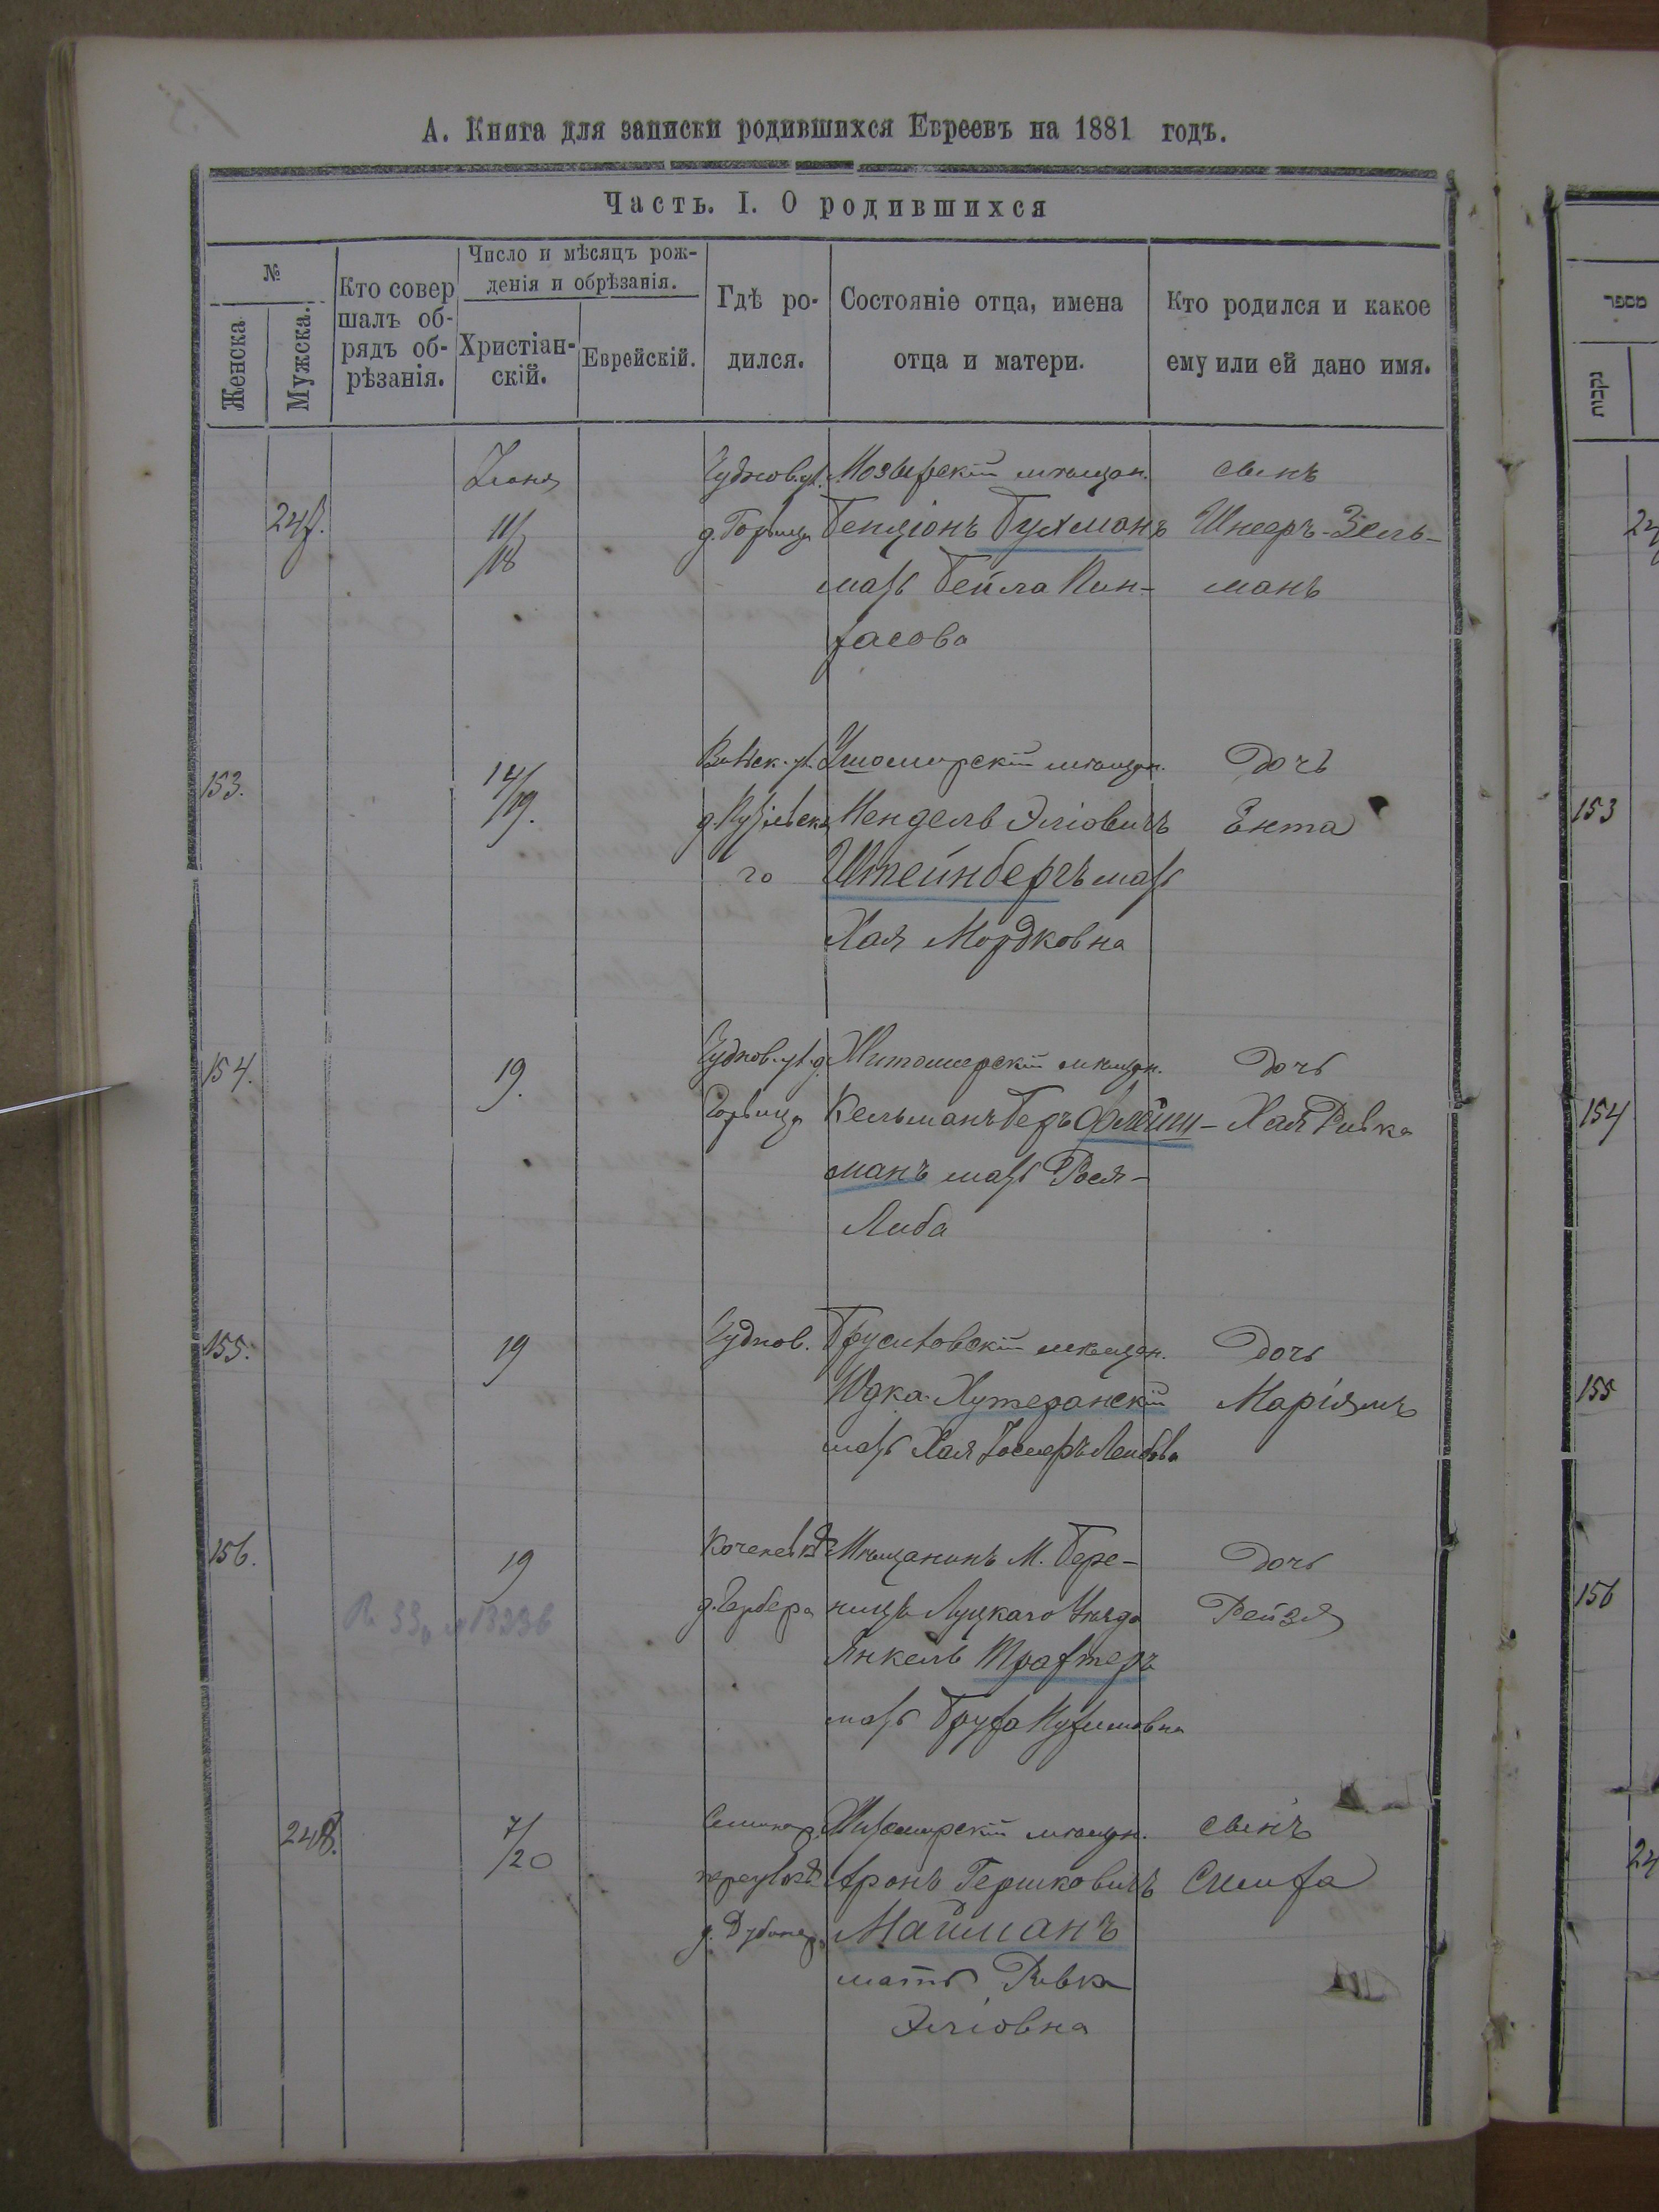 А. Книга для записки родившихся Евреевъ на 1881 годъ.
Часть. I. О родившихся
№
Женска
Мужска.
Кто совер
шалъ об-
рядъ об-
рѣзанія.
Число и мѣсяцъ рож-
денія и обрѣзанія.
Христіан-
скій.
Еврейскій.
Гдѣ ро-
дился.
Состояніе отца, имена
отца и матери.
Кто родился и какое
ему или ей дано имя.
247.
Іюня
11/18
Чуднов. ул.
Мозырскій мѣщан.
Бенціонъ Бухманъ
мать Бейла Пин-
хасова
сынъ
Шнееръ-Зель-
манъ
153.
14/19.
го
Ушомирскій мѣщан.
Мендель Эліовичъ
Штейнбергъ мать
Хая Мордковна
Дочь
Ента
154.
19.
Чуднов. ул. д.
Житомирскій мѣщан.
Кельманъ Беръ Флейш-
манъ мать Рося-
Либа
дочь
Хая Ривка
155.
19
Чуднов.
Брусиловскій мѣщан.
Юдка Хутеранскій
мать Хая Лейбова
Дочь
Маріямъ
156.
19
д. Гербера
Мѣщанинъ М. Бере-
ницъ Луцкаго Уѣзда
Янкель Трахтеръ
мать Бруха
Дочь
Рейзя
248.
7/20
Семинар.
д. Дубинер.
Житомирскій мѣщан.
Аронъ Гершковичъ
Майманъ
мать Ривка
Эліовна
сынъ
Симха
מספר
נקבות
153
154
155
156